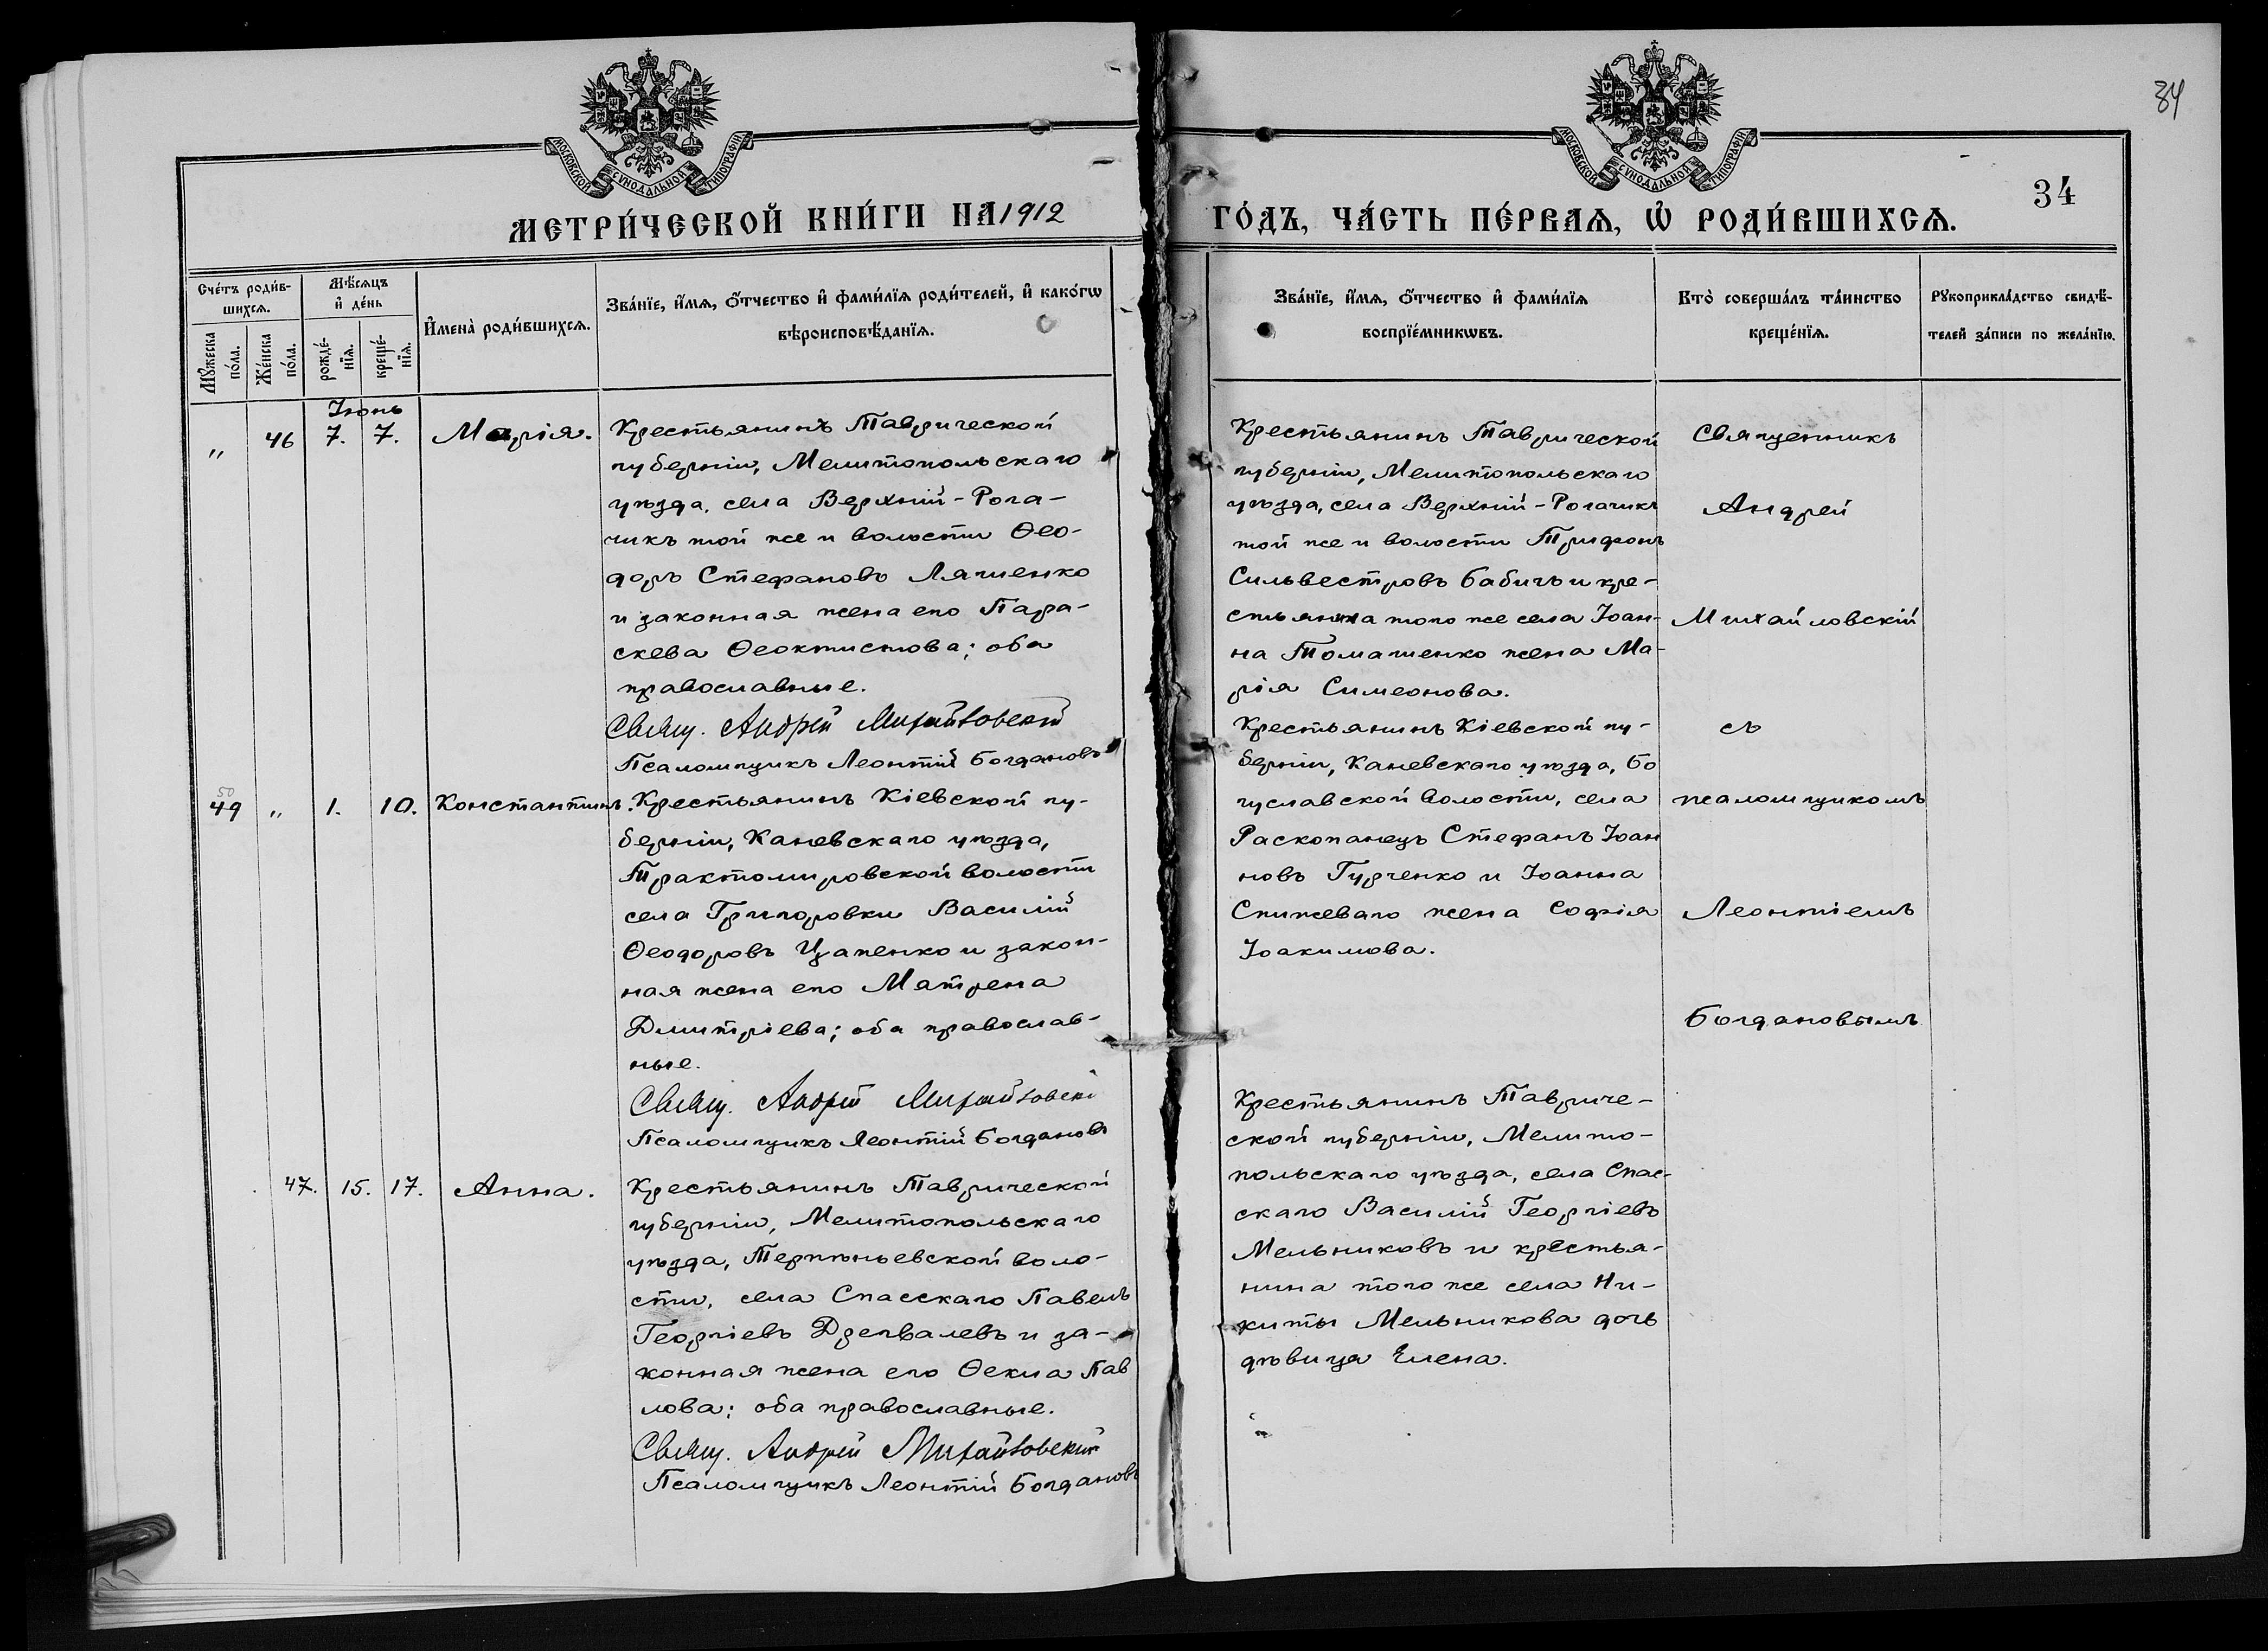 34
МОСКОВСКОЙ СѴНОДАЛЬНОЙ ТИПОГРАФІИ
МОСКОВСКОЙ СѴНОДАЛЬНОЙ ТИПОГРАФІИ
34
МЕТРИ́ЧЕСКОЙ КНИ́ГИ НА 1912
ГО́ДЪ, ЧА́СТЬ ПЕ́РВАѦ, Ѡ҆ РОДИ́ВШИХСѦ.
Сче́тъ роди́в-
шихсѧ.
Мꙋ́жеска
по́ла.
Же́нска
по́ла.
Мѣ́сѧцъ
и҆ де́нь
рожде́-
нїѧ.
креще́-
нїѧ.
И҆мена̀ роди́вшихсѧ.
Зва́нїе, и҆́мѧ, ѻ҆́тчество и҆ фами́лїѧ роди́телей, и҆ како́гѡ
вѣроисповѣ́данїѧ.
Зва́нїе, и҆́мѧ, ѻ҆́тчество и҆ фами́лїѧ
воспрїе́мникѡвъ.
Кто̀ соверша́лъ та́инство
креще́нїѧ.
Рꙋкоприкла́дство свидѣ́-
телей за́писи по жела́нїю.
Іюнь
" 46 7. 7. Марія.
Крестьянинъ Таврической
губерніи, Мелитопольскаго
уѣзда, села Верхній-Рога-
чикъ той же и волости Ѳео-
доръ Стефановъ Ляшенко
и законная жена его Пара-
скева Ѳеоктистова; оба
православные.
Свящ. Андрей Михайловскій
Псаломщикъ Леонтій Богдановъ
Крестьянинъ Таврической
губерніи, Мелитопольскаго
уѣзда, села Верхній-Рогачикъ
той же и волости Трифонъ
Сильвестровъ Бабичъ и кре-
стьянина того же села Іоан-
на Томашенко жена Ма-
рія Симеонова.
Священникъ
Андрей
Михайловскій
съ
псаломщикомъ
Леонтіемъ
Богдановымъ
50
49 " 1. 10. Константинъ.
Крестьянинъ Кіевской гу-
берніи, Каневскаго уѣзда,
Трактомировской волости
села Григоровки Василій
Ѳеодоровъ Цапенко и закон-
ная жена его Матрена
Дмитріева; оба православ-
ные.
Свящ. Андрей Михайловскі
Псаломщикъ Леонтій Богдановъ
Крестьянинъ Кіевской гу-
берніи, Каневскаго уѣзда, Бо
гуславской волости, села
Раскопанецъ Стефанъ Іоан
новъ Гурченко и Іоанна
Спижеваго жена Софія
Іоакимова.
47. 15. 17. Анна.
Крестьянинъ Таврической
губерніи, Мелитопольскаго
уѣзда, Терпѣньевской воло-
сти, села Спасскаго Павелъ
Георгіевъ Древалевъ и за-
конная жена его Ѳекла Пав
лова; оба православные.
Свящ. Андрей Михайловскій
Псаломщикъ Леонтій Богдановъ
Крестьянинъ Тавриче-
ской губерніи, Мелито-
польскаго уѣзда, села Спас-
скаго Василій Георгіевъ
Мельниковъ и крестья-
нина того же села Ни-
киты Мельникова дочь
дѣвица Елена.